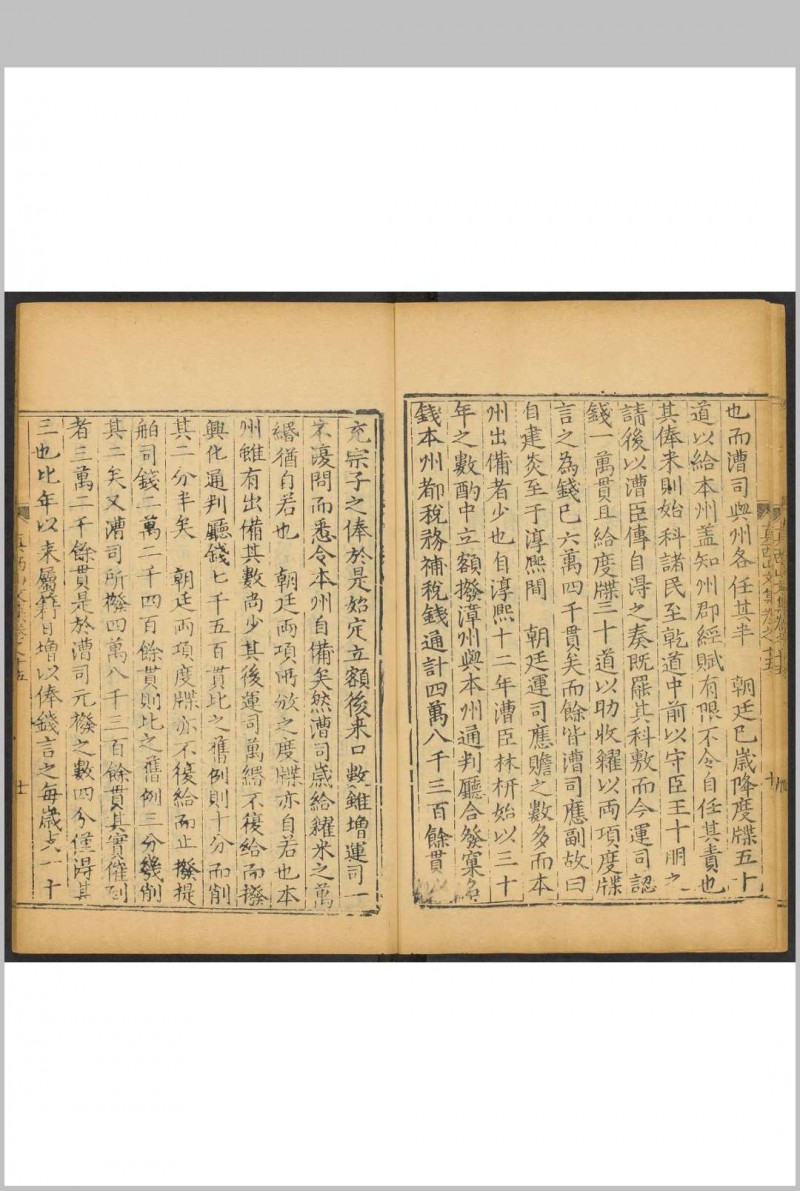 也而漕司與州各任其半　朝廷已歲降度牒五十
道以給本州盖知州郡經賦有限不令自任其責也
其俸米則始科諸民至乾道中前以守臣王十朋之
請後以漕臣傅自得之奏既罷其科敷而令運司認
錢一萬貫且給度牒三十道以助收糴以兩項度牒
言之為錢已六萬四千貫矣而餘皆漕司應副故曰
自建炎至于淳熙間　朝廷運司應贍之數多而本
州出備者少也自淳熙十二年漕臣林枅始以三十
年之數酌中立額撥漳州與本州通判廳合發窠名
錢本州都稅務補稅錢通計四萬八千三百餘貫
充宗子之俸於是始定立額後来口數雖增運司一
不復問而悉令本州自備矣然漕司歲給糴米之萬
緡猶自若也　朝廷兩項所放之度牒亦自若也本
州雖有出備其數尚少其後運司萬緡不復給而撥
興化通判廳錢七千五百貫比之舊例則十分而削
其二分半矣　朝廷兩項度牒亦不復給而止撥提
舶司錢二萬二千四百餘貫則比之舊例三分幾削
其二矣又漕司所撥四萬八千三百餘貫其實催到
者三萬二千餘貫是於漕司元撥之數四分僅得其
三也比年以来屬籍日增以俸錢言之每歲
真西山文集卷之十五
十一